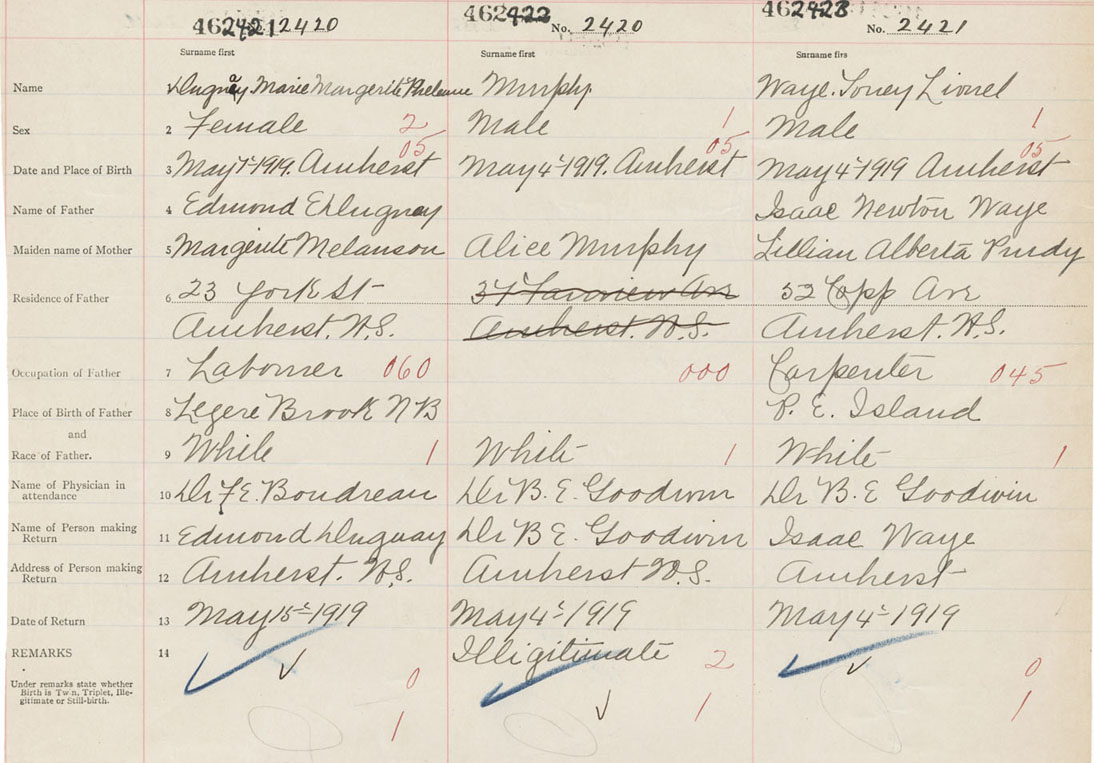 462421 2420 462422 No. 2420 462423 No. 2421
Surname first Surname first Surname firs
Name Duguay Marie Margerite Murphy Waye. Toney Lionel
Sex 2 Female 2 Male 1 Male 1
05 05 05
Date and Place of Birth 3 May 1st 1919. Amherst May 4th 1919. Amherst May 4th 1919 Amherst
Name of Father 4 Edmond E Duguay Isaac Newton Waye
Maiden name of Mother 5 Margerite Melanson Alice Murphy Lillian Alberta Purdy
Residence of Father 6 23 York St 37 Fairview Ave 52 Copp Ave
Amherst. N.S. Amherst. N.S. Amherst. N.S.
Occupation of Father 7 Labourer 060 000 Carpenter 045
Place of Birth of Father 8 Legere Brook N B P. E. Island
and
Race of Father. 9 White 1 White 1 White 1
Name of Physician in
attendance 10 Dr F. E. Boudreau Dr B. E. Goodwin Dr B. E Goodwin
Name of Person making
Return 11 Edmond Duguay Dr B E. Goodwin Isaac Waye
Address of Person making
Return 12 Amherst. N.S. Amherst N.S. Amherst
Date of Return 13 May 15th 1919 May 4th 1919 May 4th 1919
REMARKS 14 Illigitimate 2
Under remarks state whether
Birth is Twin, Triplet, Ille-
gitimate or Still-birth.
0 0
1 1 1